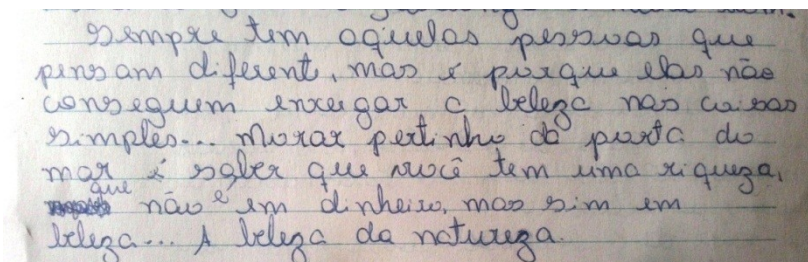 Sempre tem aquelas pessoas que
pensam diferente, mas é porque elas não
conseguem enxergar a beleza nas coisas
simples... Morar pertinho da porta do
mar é saber que você tem uma riqueza,
que não é em dinheiro, mas sim em
beleza... A beleza da natureza.